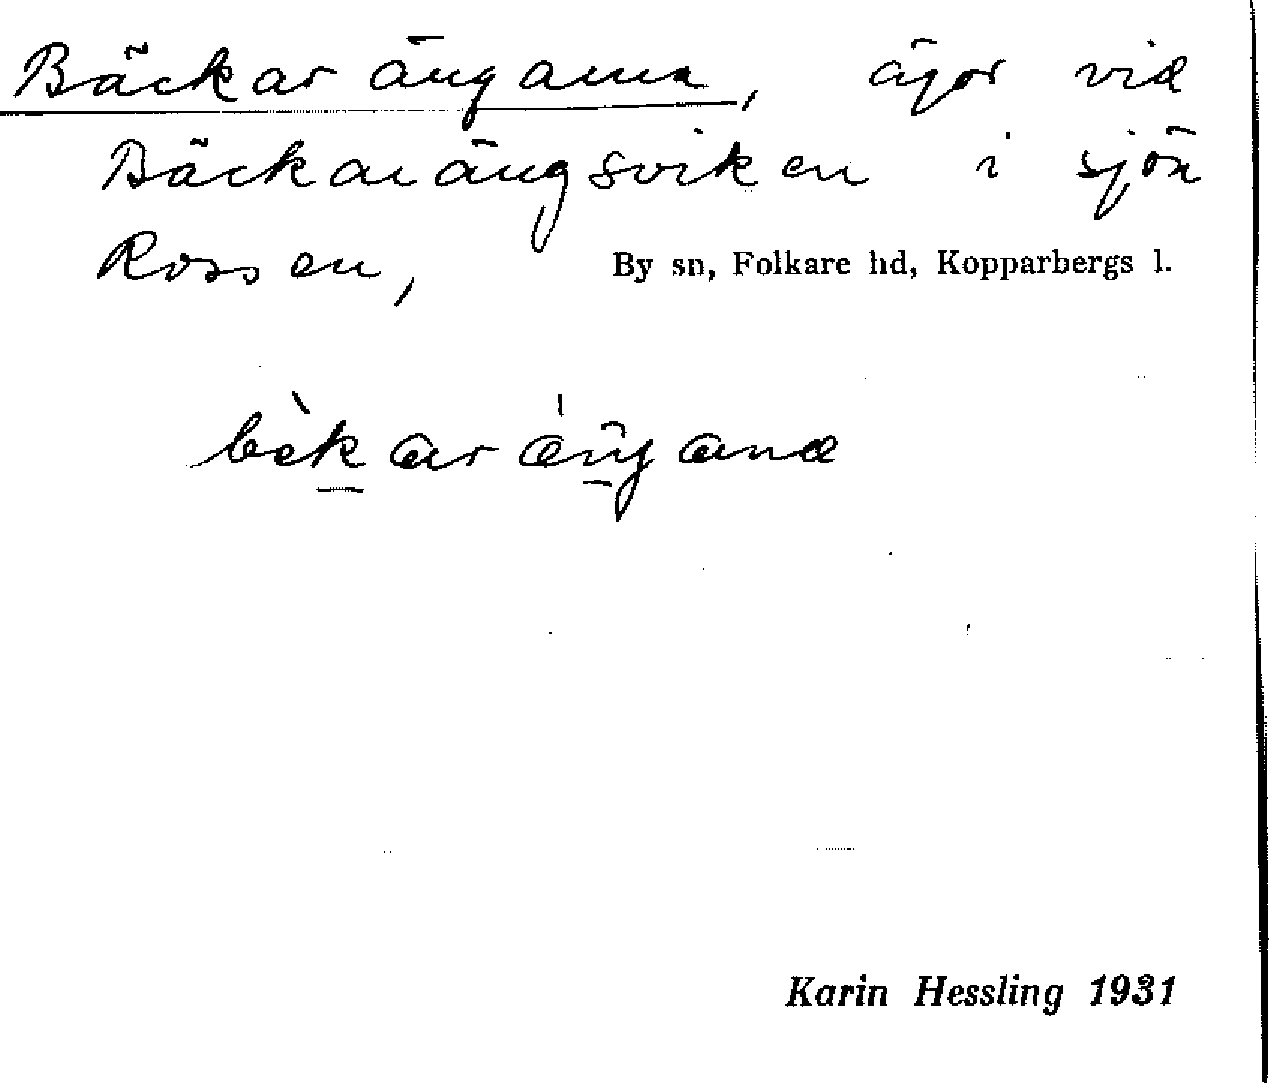 Bäckarängarna, ägor vid
Bäckarängsviken i sjön
Rossen, By sn, Folkare hd, Kopparbergs l.
Karin Hessling 1931